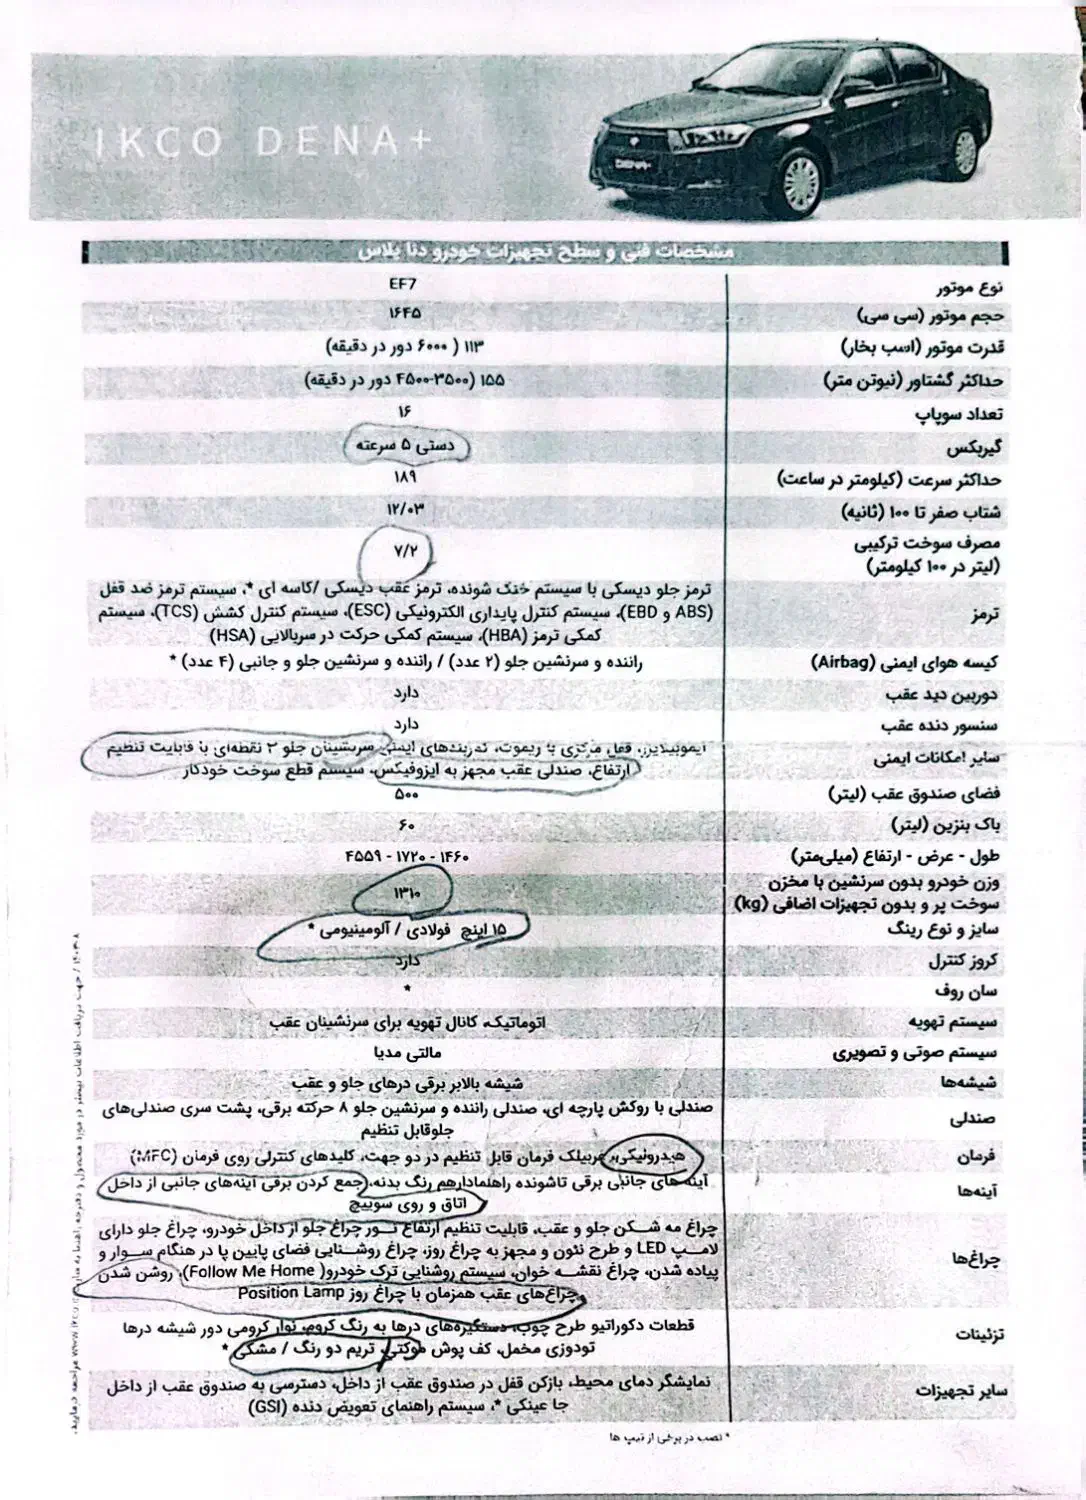 IKCO DENA+
DENA+
مشخصات فنی و سطح تجهیزات خودرو دنا پلاس
نوع موتور EF7
حجم موتور (سی سی) ۱۶۴۵
قدرت موتور (اسب بخار) ۱۱۳ ( ۶۰۰۰ دور در دقیقه)
حداکثر گشتاور (نیوتن متر) ۱۵۵ (۳۵۰۰-۴۵۰۰ دور در دقیقه)
تعداد سوپاپ ۱۶
گیربکس دستی ۵ سرعته
حداکثر سرعت (کیلومتر در ساعت) ۱۸۹
شتاب صفر تا ۱۰۰ (ثانیه) ۱۲/۰۳
مصرف سوخت ترکیبی
(لیتر در ۱۰۰ کیلومتر) ۷/۲
ترمز جلو دیسکی با سیستم خنک شونده، ترمز عقب دیسکی /کاسه ای *، سیستم ترمز ضد قفل
ترمز (ABS و EBD)، سیستم کنترل پایداری الکترونیکی (ESC)، سیستم کنترل کشش (TCS)، سیستم
کمکی ترمز (HBA)، سیستم کمکی حرکت در سربالایی (HSA)
کیسه هوای ایمنی (Airbag) راننده و سرنشین جلو (۲ عدد) / راننده و سرنشین جلو و جانبی (۴ عدد) *
دوربین دید عقب دارد
سنسور دنده عقب دارد
سایر امکانات ایمنی ایموبیلایزر، قفل مرکزی با ریموت، کمربندهای ایمنی سرنشینان جلو ۳ نقطه‌ای با قابلیت تنظیم
ارتفاع، صندلی عقب مجهز به ایزوفیکس، سیستم قطع سوخت خودکار
فضای صندوق عقب (لیتر) ۵۰۰
باک بنزین (لیتر) ۶۰
طول - عرض - ارتفاع (میلی‌متر) ۱۴۶۰ - ۱۷۲۰ - ۴۵۵۹
وزن خودرو بدون سرنشین با مخزن
سوخت پر و بدون تجهیزات اضافی (kg) ۱۳۱۰
سایز و نوع رینگ ۱۵ اینچ فولادی / آلومینیومی *
کروز کنترل دارد
سان روف *
سیستم تهویه اتوماتیک، کانال تهویه برای سرنشینان عقب
سیستم صوتی و تصویری مالتی مدیا
شیشه‌ها شیشه بالابر برقی درهای جلو و عقب
صندلی صندلی با روکش پارچه ای، صندلی راننده و سرنشین جلو ۸ حرکته برقی، پشت سری صندلی‌های
جلوقابل تنظیم
فرمان هیدرونیکی، غربیلک فرمان قابل تنظیم در دو جهت، کلیدهای کنترلی روی فرمان (MFC)
آینه‌ها آینه های جانبی برقی تاشونده راهنمادارهم رنگ بدنه، جمع کردن برقی آینه‌های جانبی از داخل
اتاق و روی سوییچ
چراغ مه شکن جلو و عقب، قابلیت تنظیم ارتفاع نور چراغ جلو از داخل خودرو، چراغ جلو دارای
چراغ‌ها لامپ LED و طرح نئون و مجهز به چراغ روز، چراغ روشنایی فضای پایین پا در هنگام سوار و
پیاده شدن، چراغ نقشه خوان، سیستم روشنایی ترک خودرو( Follow Me Home)، روشن شدن
چراغ‌های عقب همزمان با چراغ روز Position Lamp
تزئینات قطعات دکوراتیو طرح چوب، دستگیره‌های درها به رنگ کروم، نوار کرومی دور شیشه درها
تودوزی مخمل، کف پوش موکتی، تریم دو رنگ / مشکی *
سایر تجهیزات نمایشگر دمای محیط، بازکن قفل در صندوق عقب از داخل، دسترسی به صندوق عقب از داخل
جا عینکی *، سیستم راهنمای تعویض دنده (GSI)
* نصب در برخی از تیپ ها